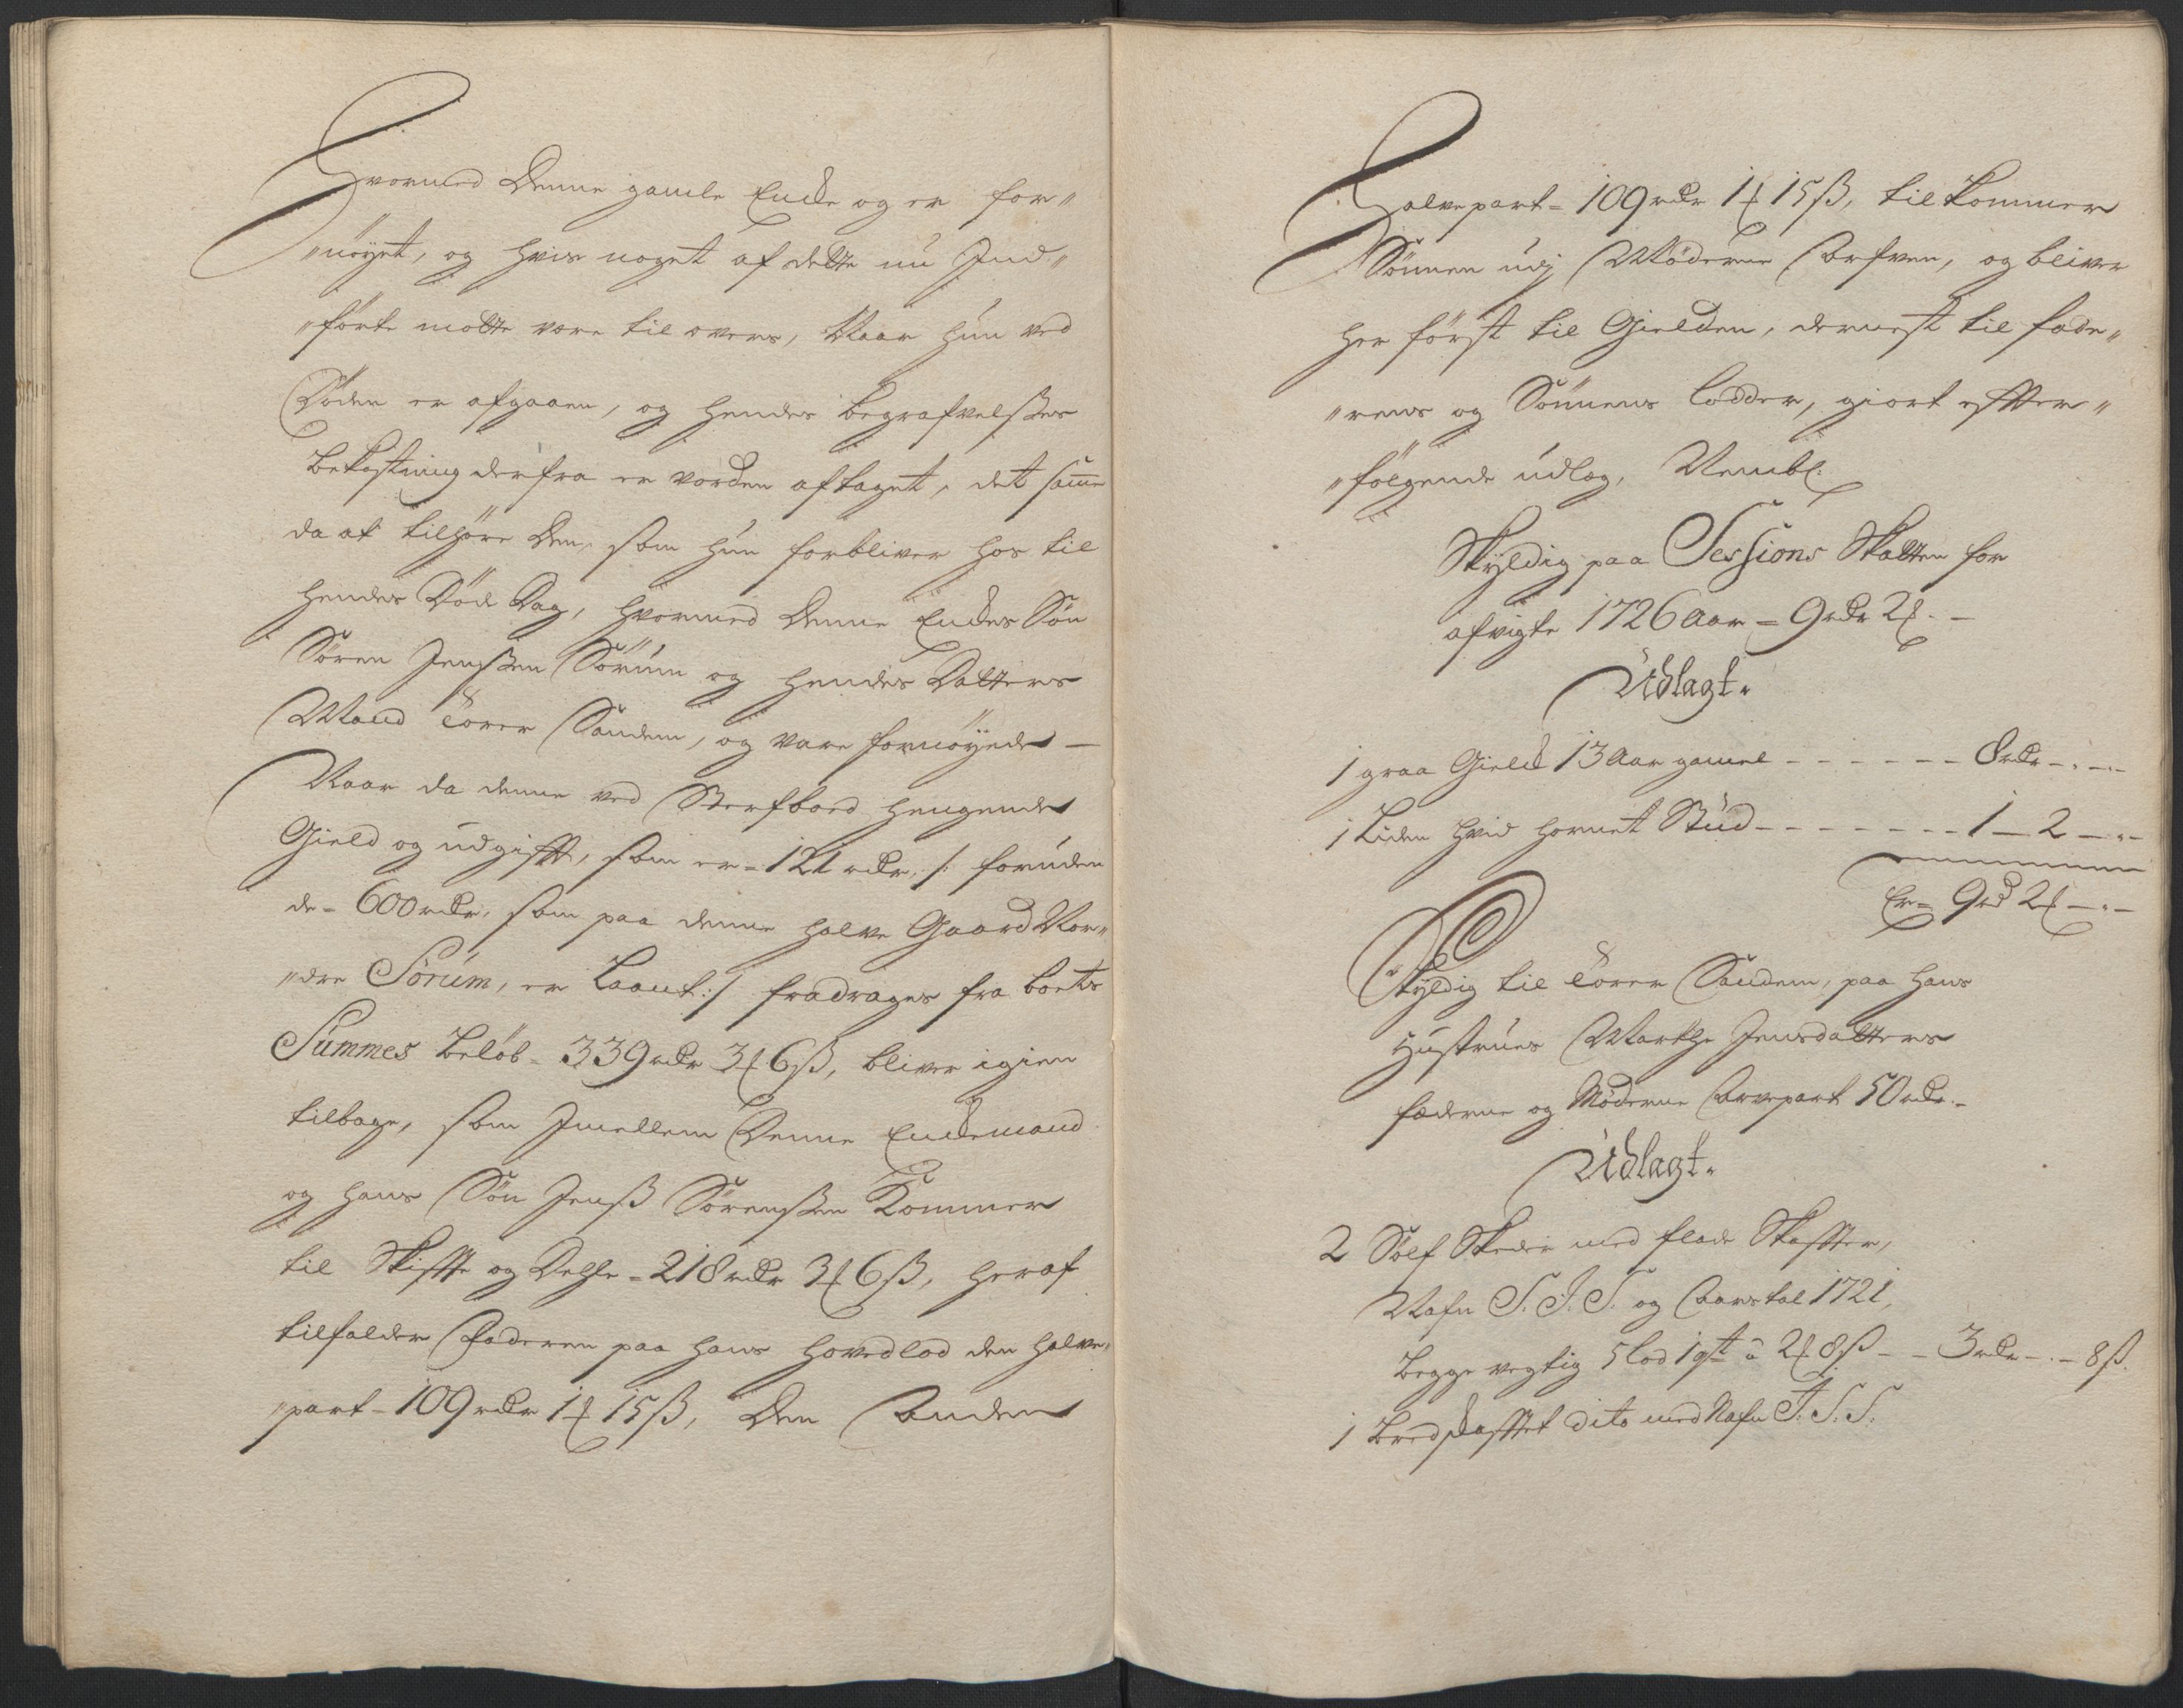 Hvormed denne gamle Encke og er for„
„nöyet, og hvis noget af dette nu Ind„
„förte motte være til overs, Naar hun ved
Döden er afgaaen, og hendes begrafvelsses
Bekostning derfra er vorden aftaget, det samme
da at tilhöre den, som hun forbliver hos til
hendes Död Dag, hvormed denne Enckes Sön
Sören Jenssen Sörum og hendes Datters
Mand Torer Sandem, og vare fornöyede —
Naar da denne ved Sterfboed hengende
Gield og udgifft, som er = 121 rdr. /: foruden
de = 600 rdr, som paa denne halve Gaard Nor„
„dre Sörum, er Laant :/ fradrages fra boets
Summes Beløb = 339 rdr 3 ℔ 6 ß, bliver igien
tilbage, som Imellem Denne Enckemand
og hans Sön Jenß Sörenssen Kommer
til Skiffte og Dehle = 218 rdr 3 ℔ 6 ß, heraf
tilfalder Faderen paa hans hovedlod den halve„
„part = 109 rdr 1 ℔ 15 ß, Den Anden
Halvepart = 109 rdr 1 ℔ 15 ß, tilkommer
Sönnen udj Möderne Arfven, og bliver
her först til Gielden, dernest til fade„
„rens og Sönnens lodder, giort effter„
„fölgende udlæg, Nembl:
Skyldig paa Sessions Skatten for
afvigte 1726 Aar = 9 rdr 2 ℔. –
Udlagt.
1 graa Gield 13 Aar gamel - - - - - - 8 rdr - . - . -
1 Liden hvid hornet Stud - - - - - - - 1 – 2 – . –
Er = 9 rd 2 ℔ – . –
Skyldig til Torer Sandem, paa hans
Hustrues Marthe Jensdatters
fæderne og Möderne Arvepart 50 rdr. –
Udlagt.
2 Sölf Skeder med flade Skaffter,
Nafn S. J. S. og Aarstal 1721,
begge vegtig 5 lod 1 qt à 2 ℔ 8 ß - - 3 rdr - . - 8 ß.
1 Bredskafftet dito med Nafn J. S. S.